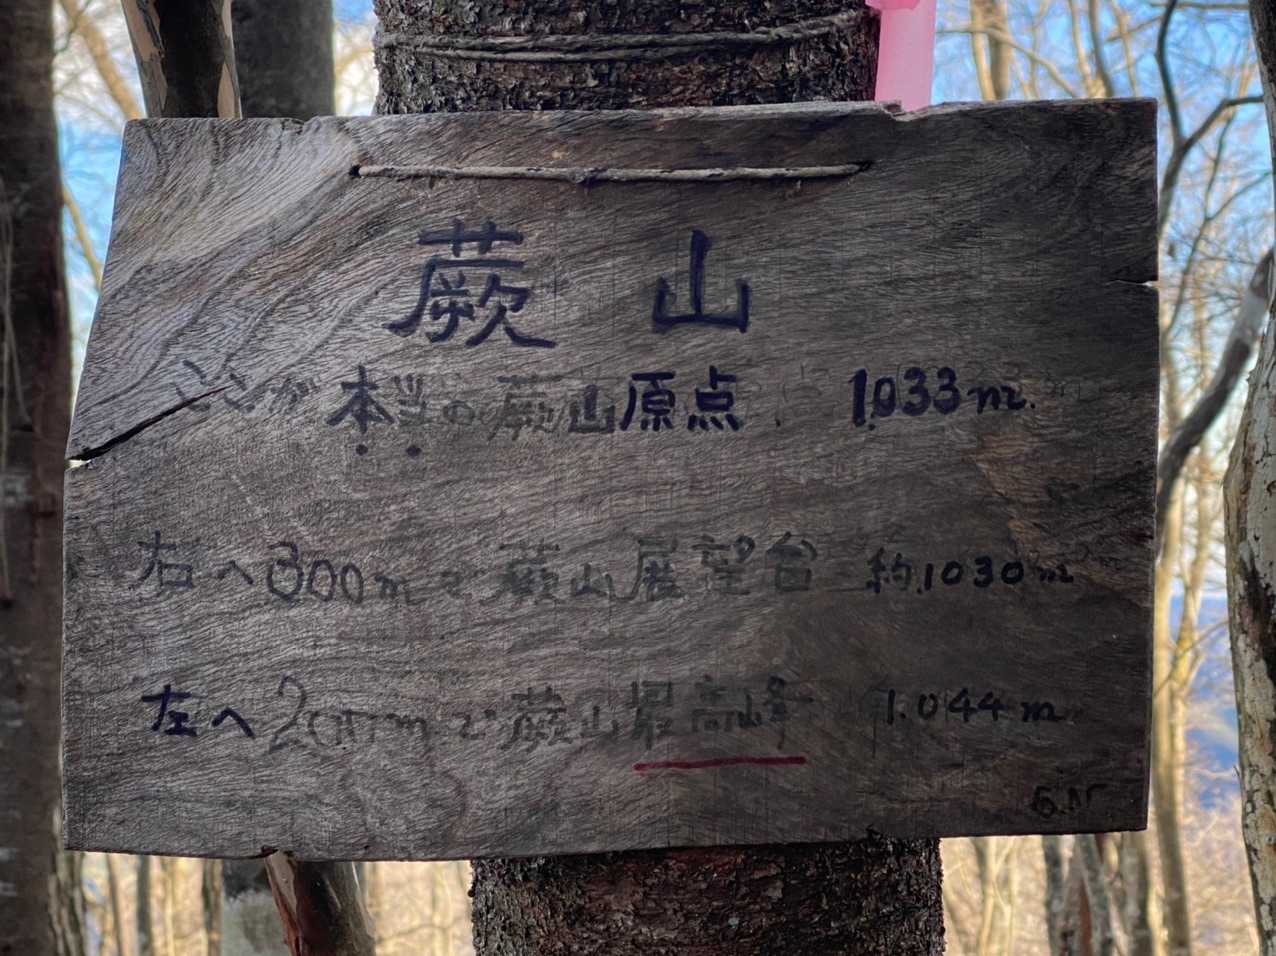 蕨山
ここが本当の蕨山原点 1.033m.
右へ300mで蕨山展望台 約1030m
左へ200mで蕨山最高峰 1.044m